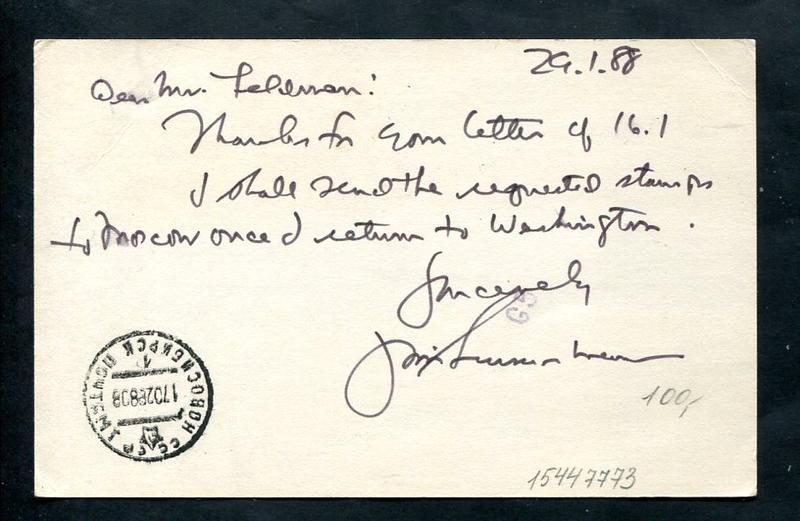 29.1.88
Dear Mr. Feldman:
Thanks for your letter of 16.1
I shall send the requested stamps
to Moscow once I return to Washington.
Sincerely
G5
НОВОСИБИРСК ПОЧТАМТ СССР
17028808
100,-
15447773